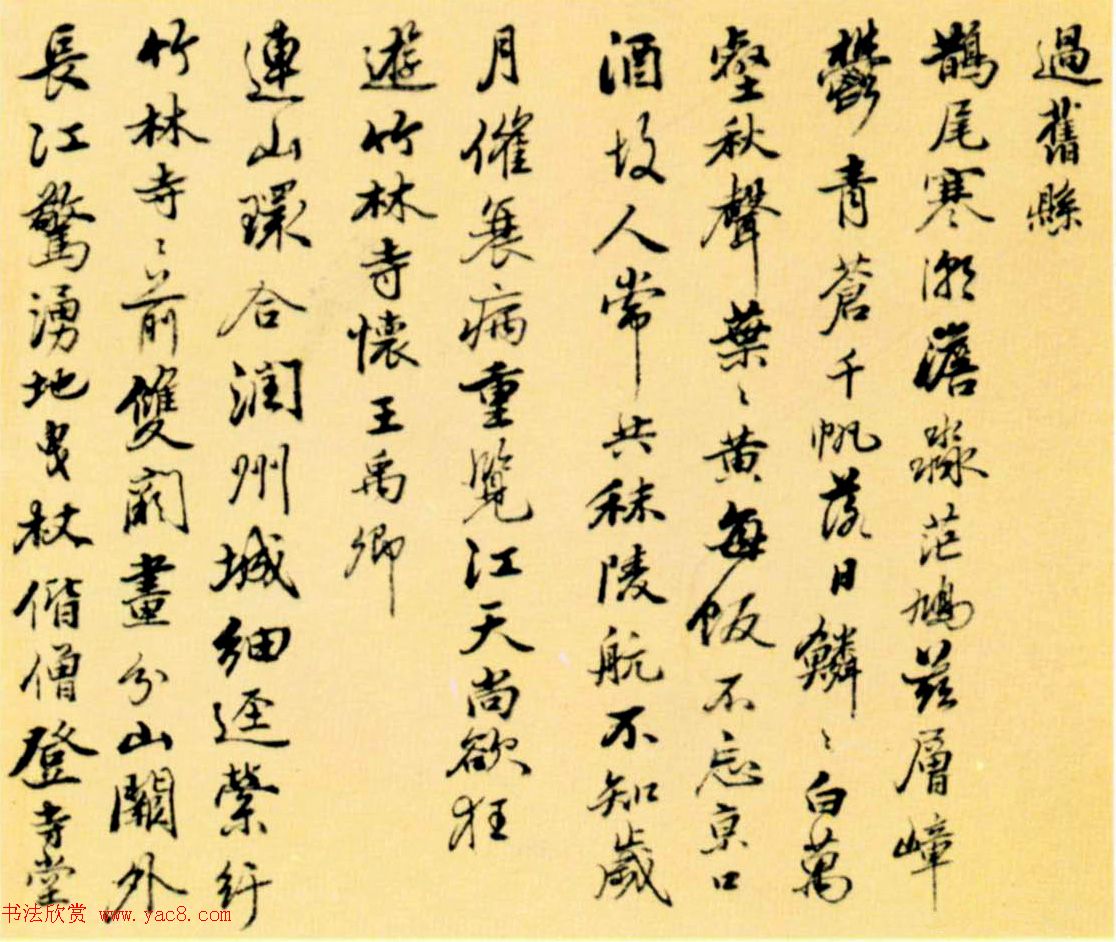 過舊縣
鵲尾寒漪澹淼茫鳩茲層嶂
鬱青蒼千帆落日鱗〻白萬
壑秋聲葉〻黃每飯不忘京口
酒故人常共秣陵航不知歲
月催衰病重覽江天尚欲狂
遊竹林寺懷王禹卿
連山環合潤州城細逕縈紆
竹林寺〻前雙闕畫分山關外
長江驚湧地曳杖偕僧登寺堂
书法欣赏 www.yac8.com